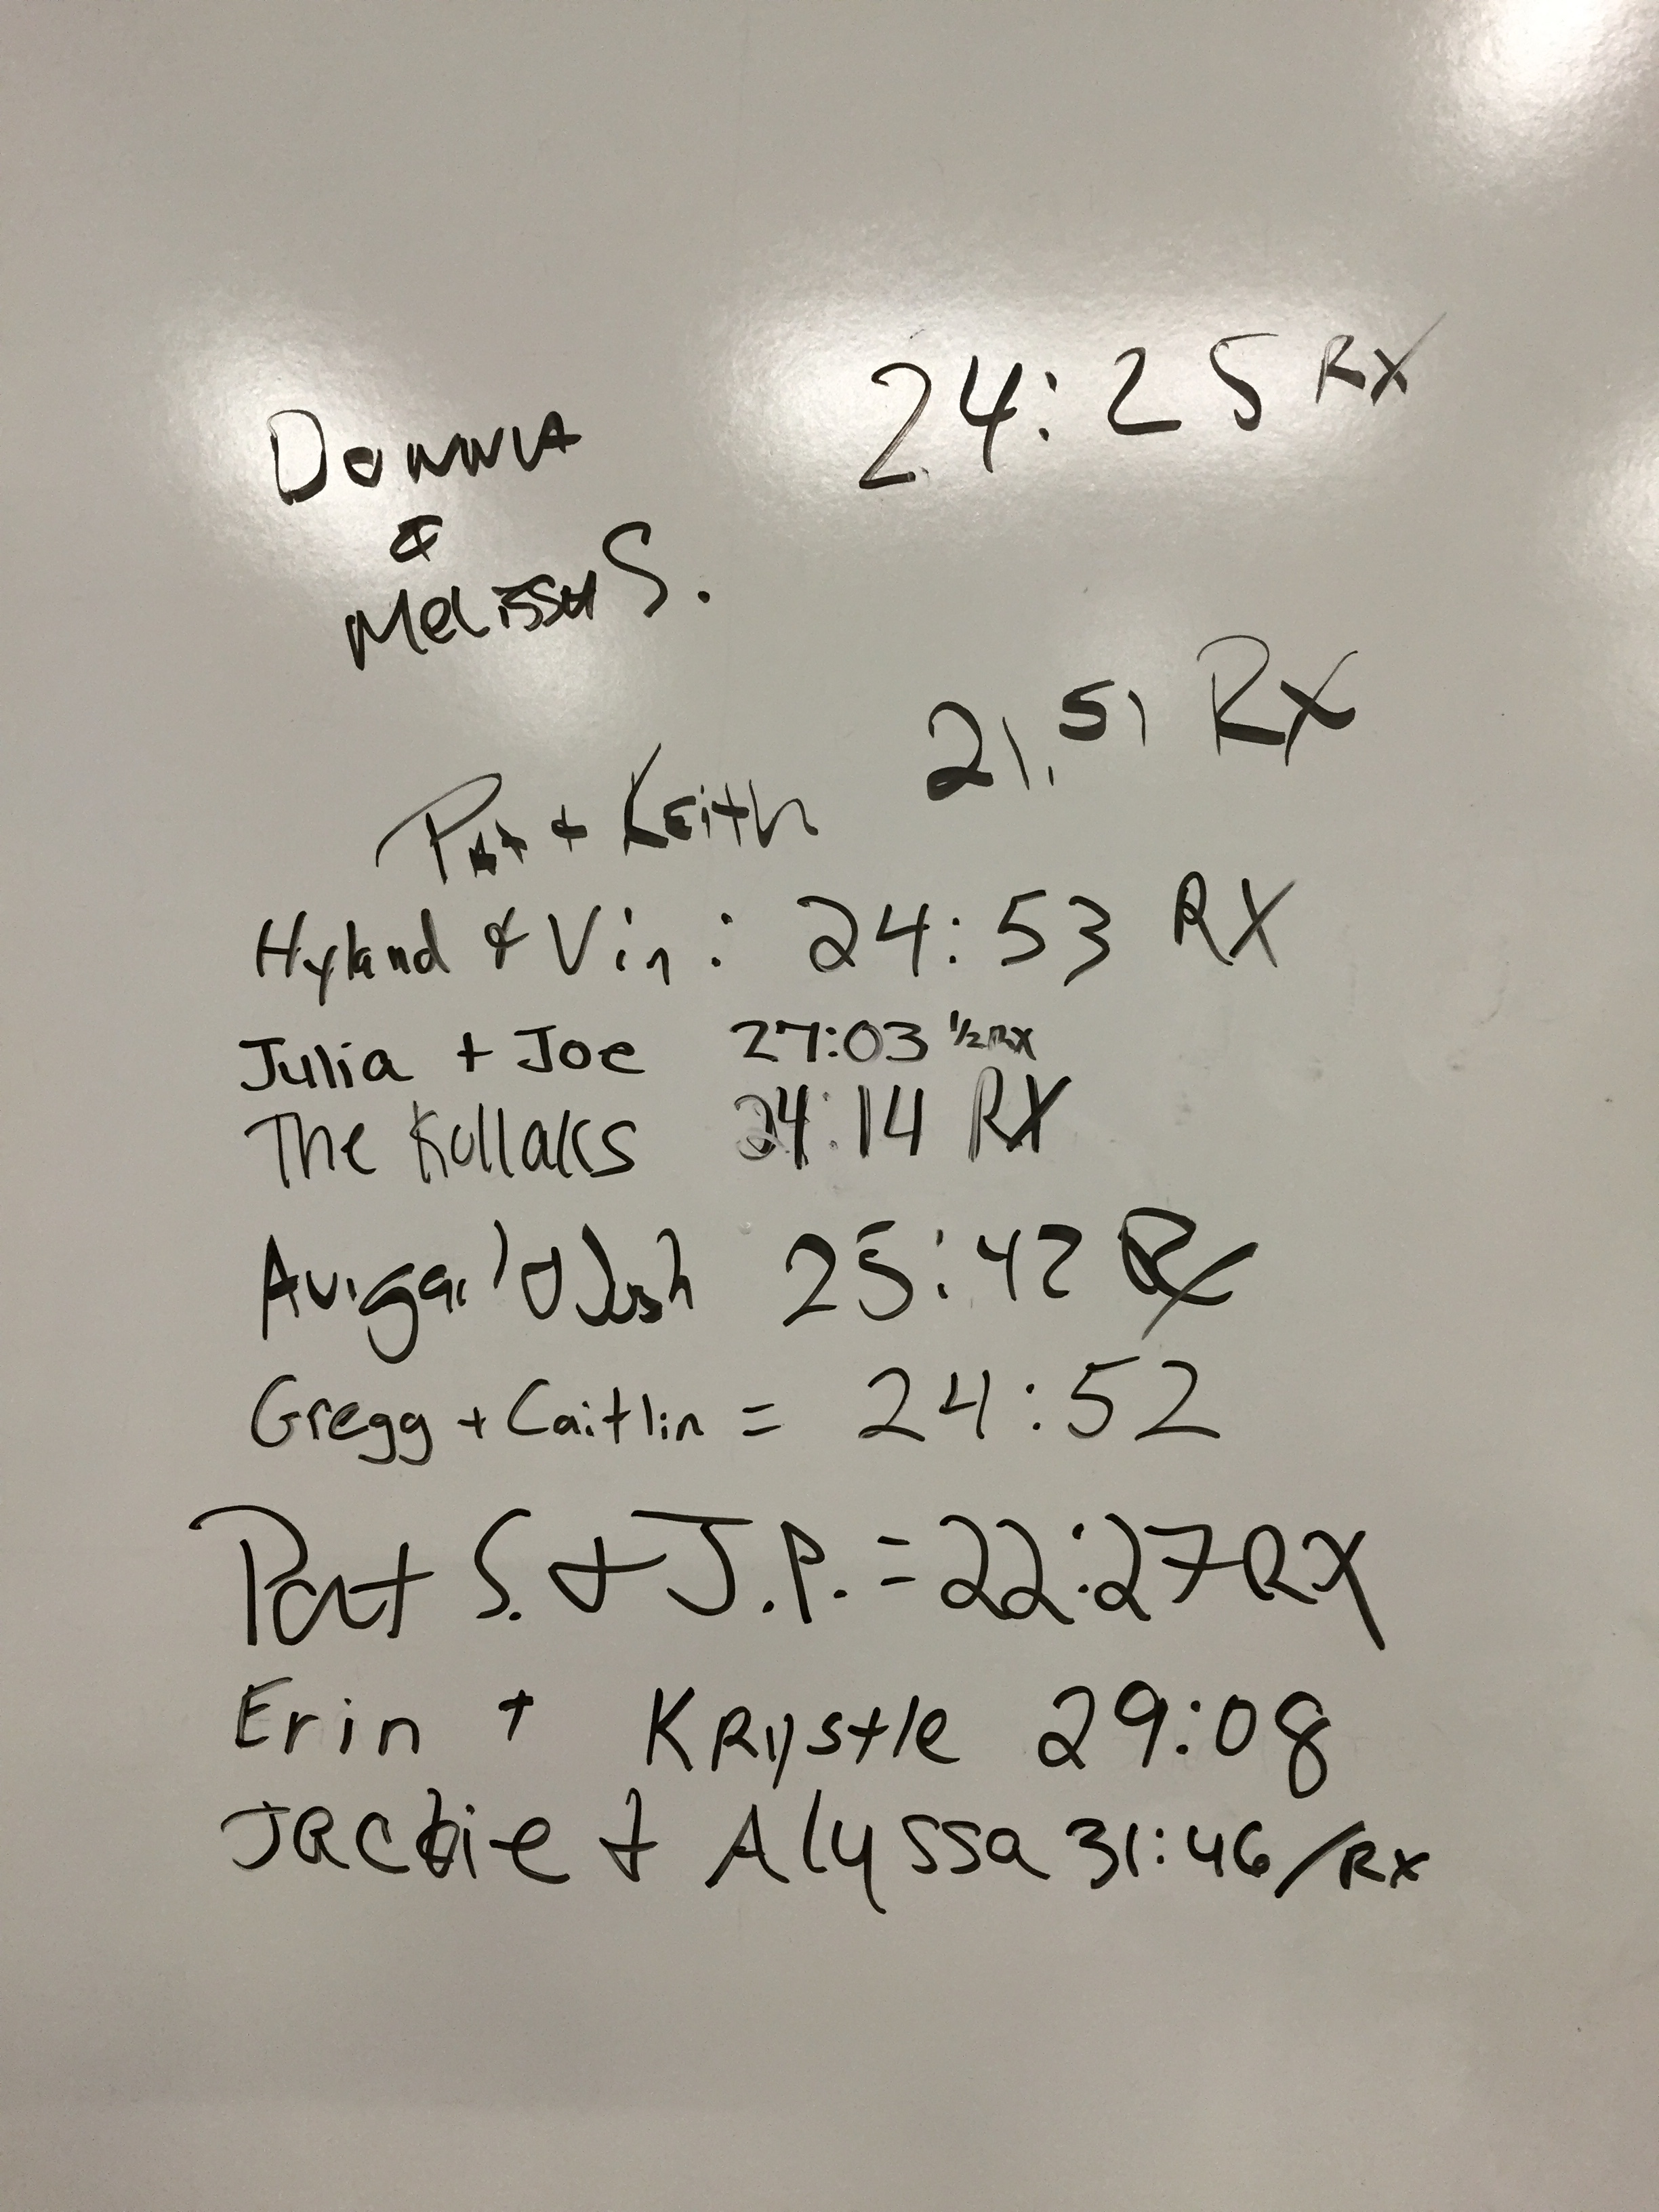 Donna 24:25 RX
&
Melissa S.
Pat + Keith 21.51 RX
Hyland & Vin: 24:53 RX
Julia + Joe 27:03 1/2 RX
The Kullaks 24:14 RX
Avigail & Josh 25:42 Rx
Gregg + Caitlin = 24:52
Pat S. + J.P. = 22:27 RX
Erin + KRystle 29:08
Jackie + Alyssa 31:46/RX